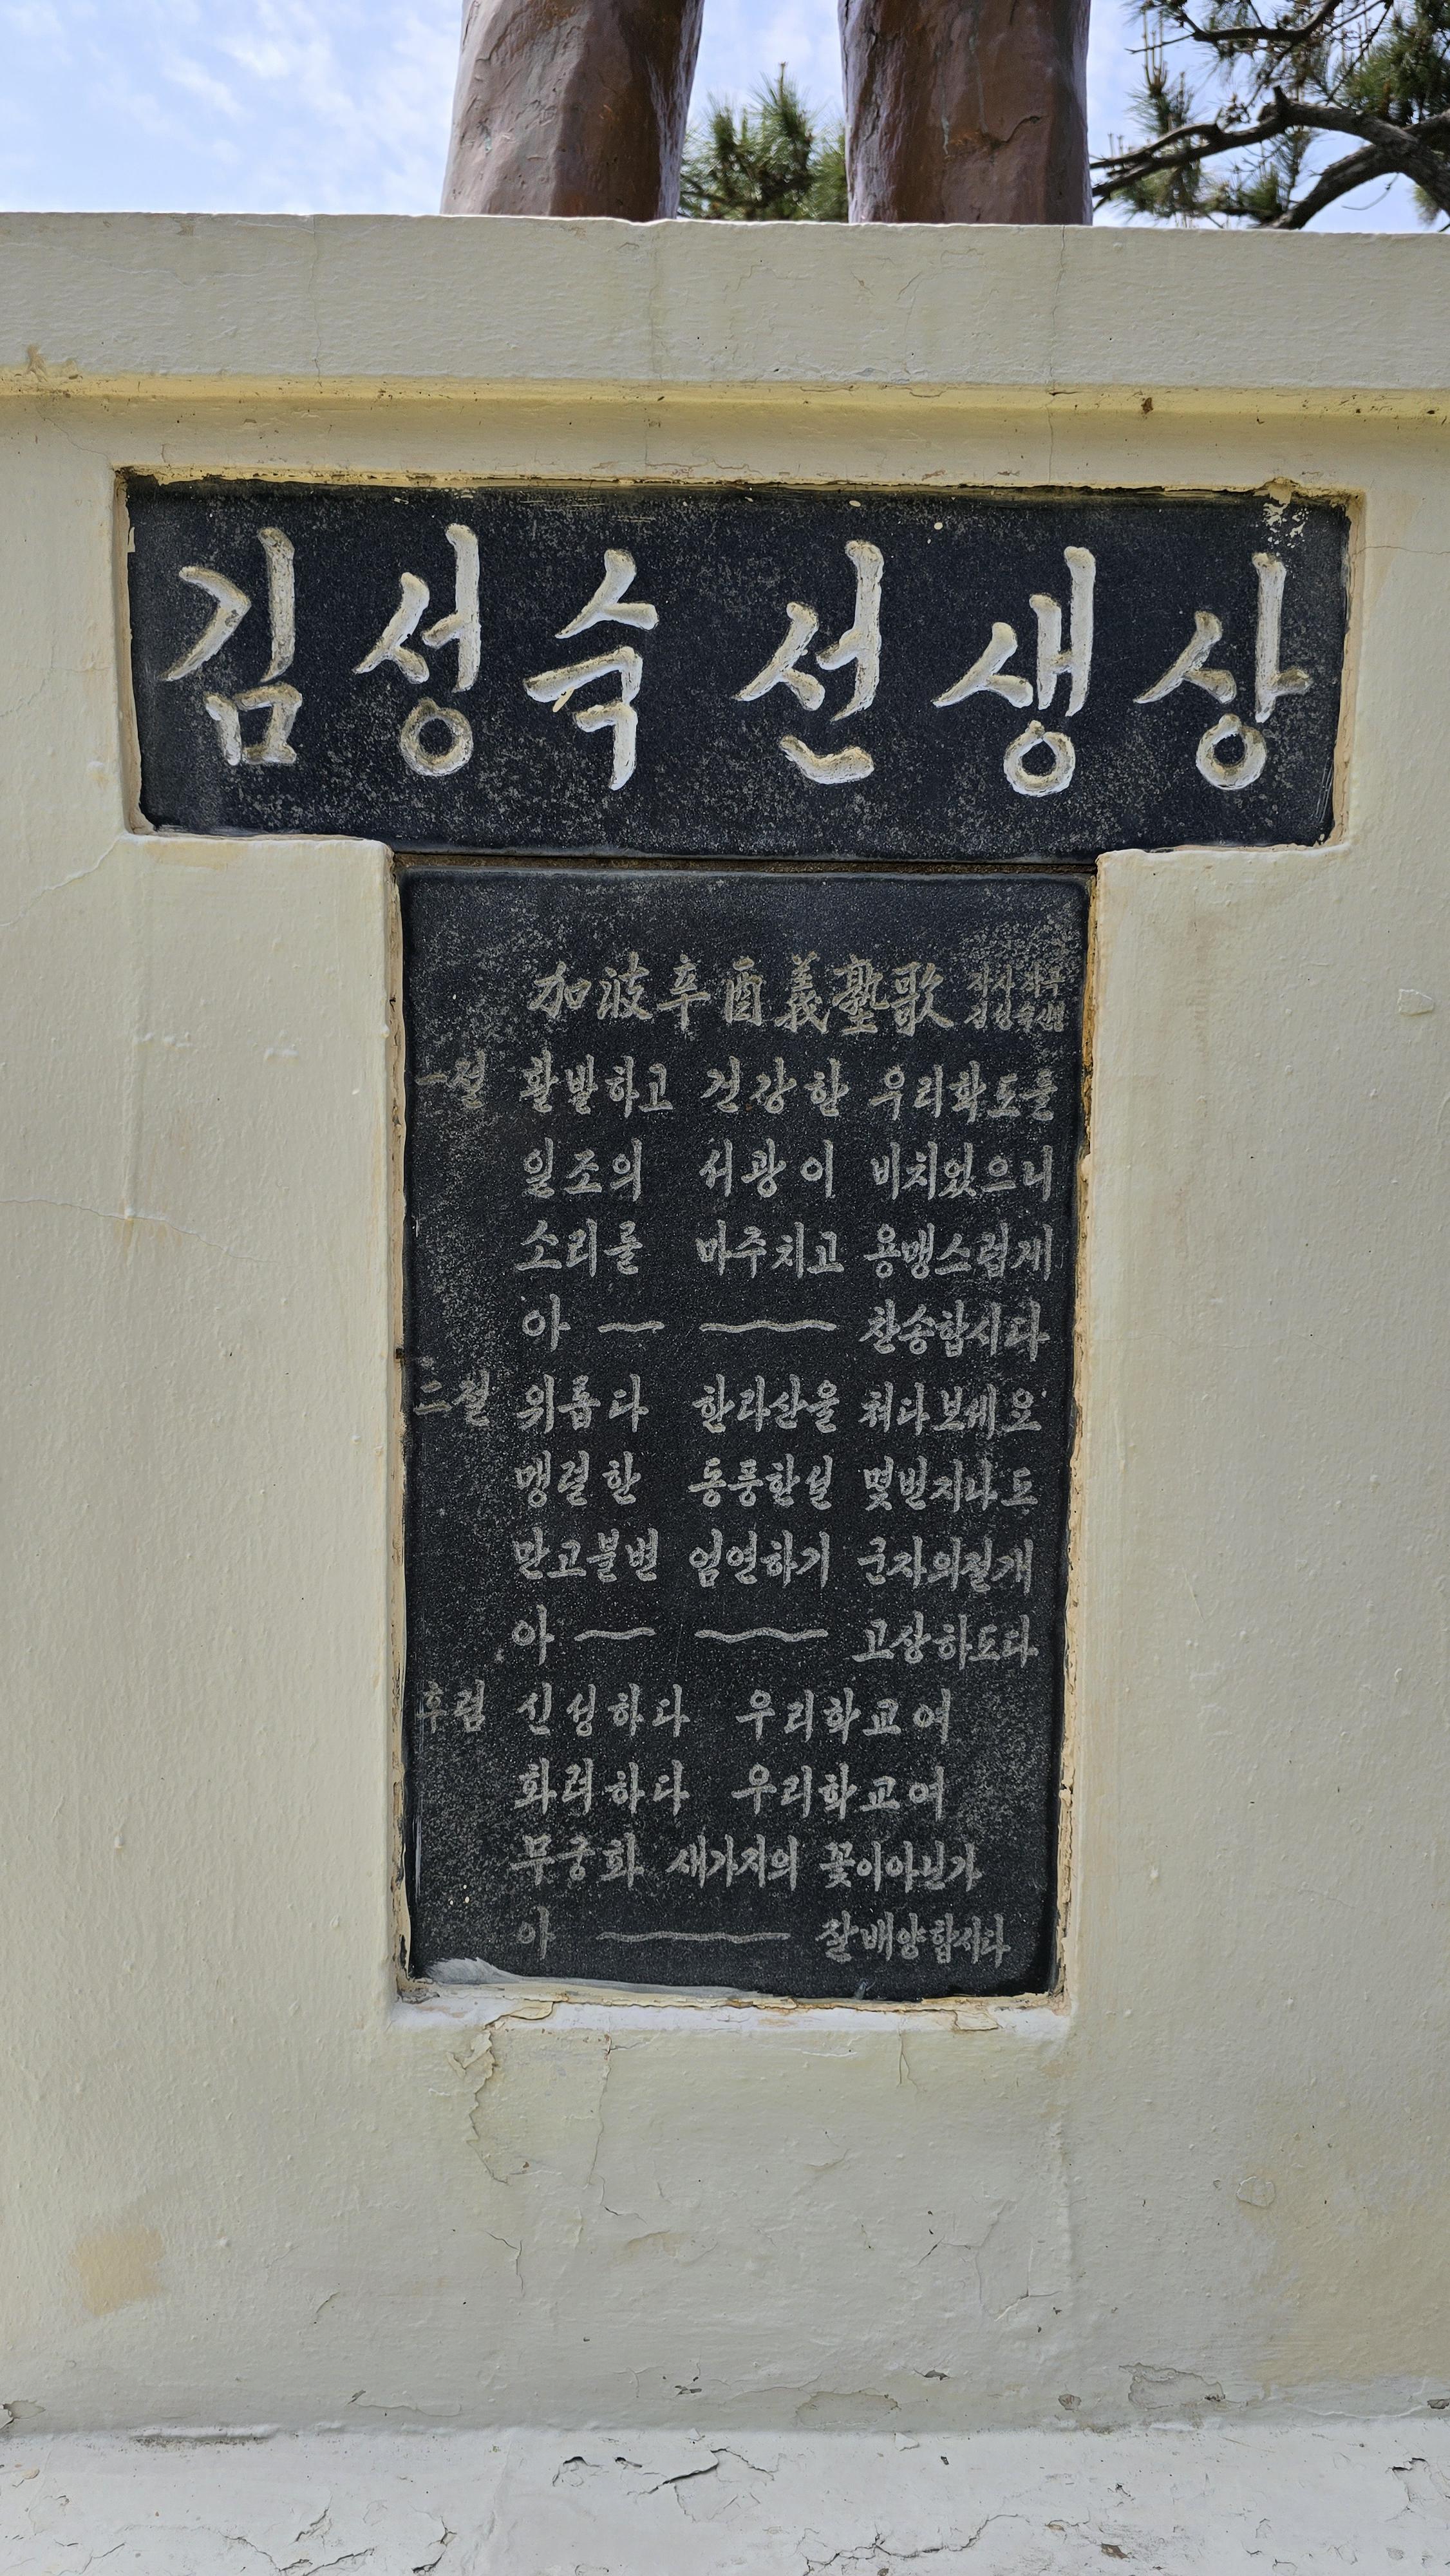 김성숙 선생상
加波辛酉義塾歌 작사 작곡 김성숙 선생
一절 활발하고 건강한 우리학도를
일조의 서광이 비치었으니
소리를 마주치고 용맹스럽게
아 ~ ~ 찬송합시다
二절 위롭다 한라산을 쳐다보세요
맹렬한 동풍한설 몇번지나도
만고불변 엄연하기 군자의절개
아 ~ ~ 고상하도다
후렴 신성하다 우리학교여
화려하다 우리학교여
무궁화 새가지의 꽃이아닌가
아 ~ 잘배양합시다